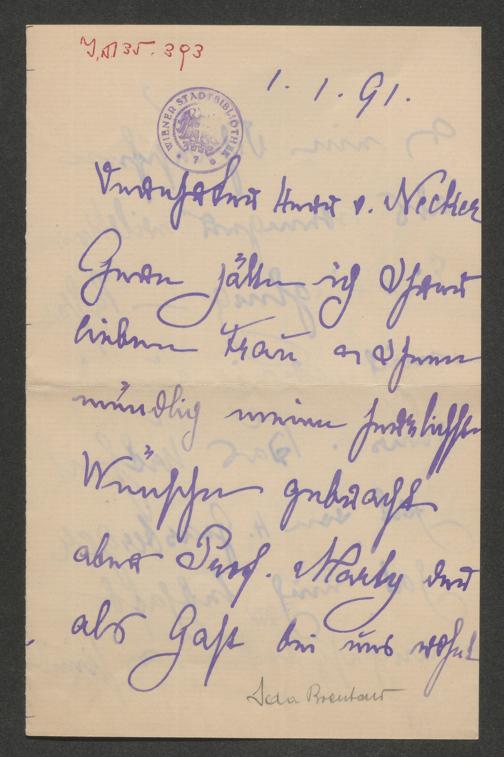 J.N. 135.393
1. 1. 91.
WIENER STADTBIBLIOTHEK
Verehrter Herr v. Necker
Gern hätte ich Ihrer
lieben Frau u Ihnen
mündlich meine herzlichsten
Wünsche gebracht
aber Prof. Marty der
als Gast bei uns wohnt
Ida Brentano